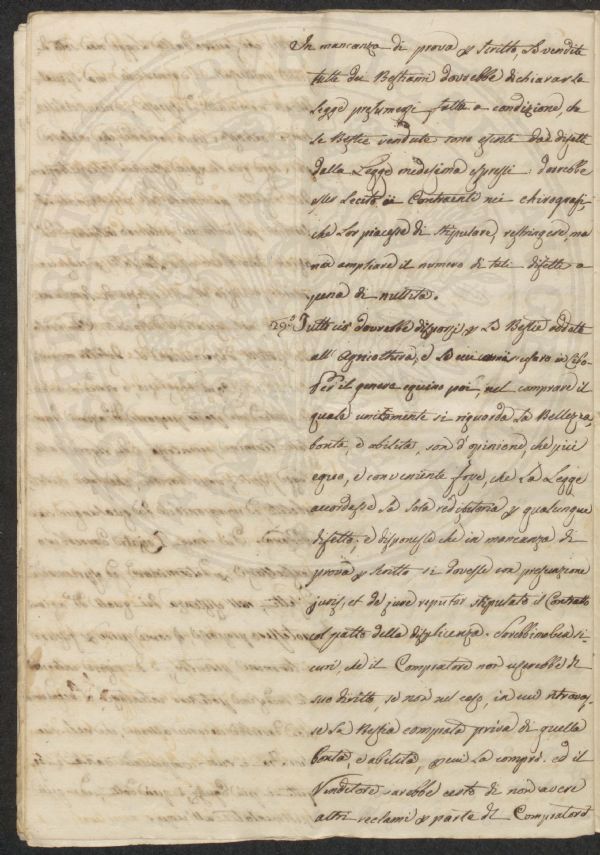 In mancanza di prova p Scritto, la vendita
tutte dei Bestiami dovrebbe dichiarar la
Legge presumersi fatta a condizione, che
le Bestie vendute sono esenti dai difetti
dalla Legge medesima espressi: dovrebbe
esser lecito ai Contraenti nei chirografi,
che lor piacesse di stipulare, restringere, ma
non ampliare il numero di tali difetti a
pena di nullità.
29.° Tutto ciò dovrebbe disporsi p le Bestie addette
all' Agricoltura, e
Per il genere equino poi, nel comprare il
quale unitamente si riguarda la Bellezza,
bontà, e abilità, son d'opinione, che più
equo, e conveniente fosse, che la Legge
accordasse la sola redibitoria p qualunque
difetto, e disponesse che in mancanza di
prova p scritto si dovesse con presunzione
juris, et de jure reputar stipulato il Contratto
col patto della displicenza. Sarebbimo ben si-
curi, che il Compratore non userebbe di
suo diritto, se non nel caso, in cui ritrovas-
se la Bestia comprata priva di quella
bontà e abilità, p cui la comprò. ed il
Venditore sarebbe certo di non avere
altri reclami p parte del Compratore